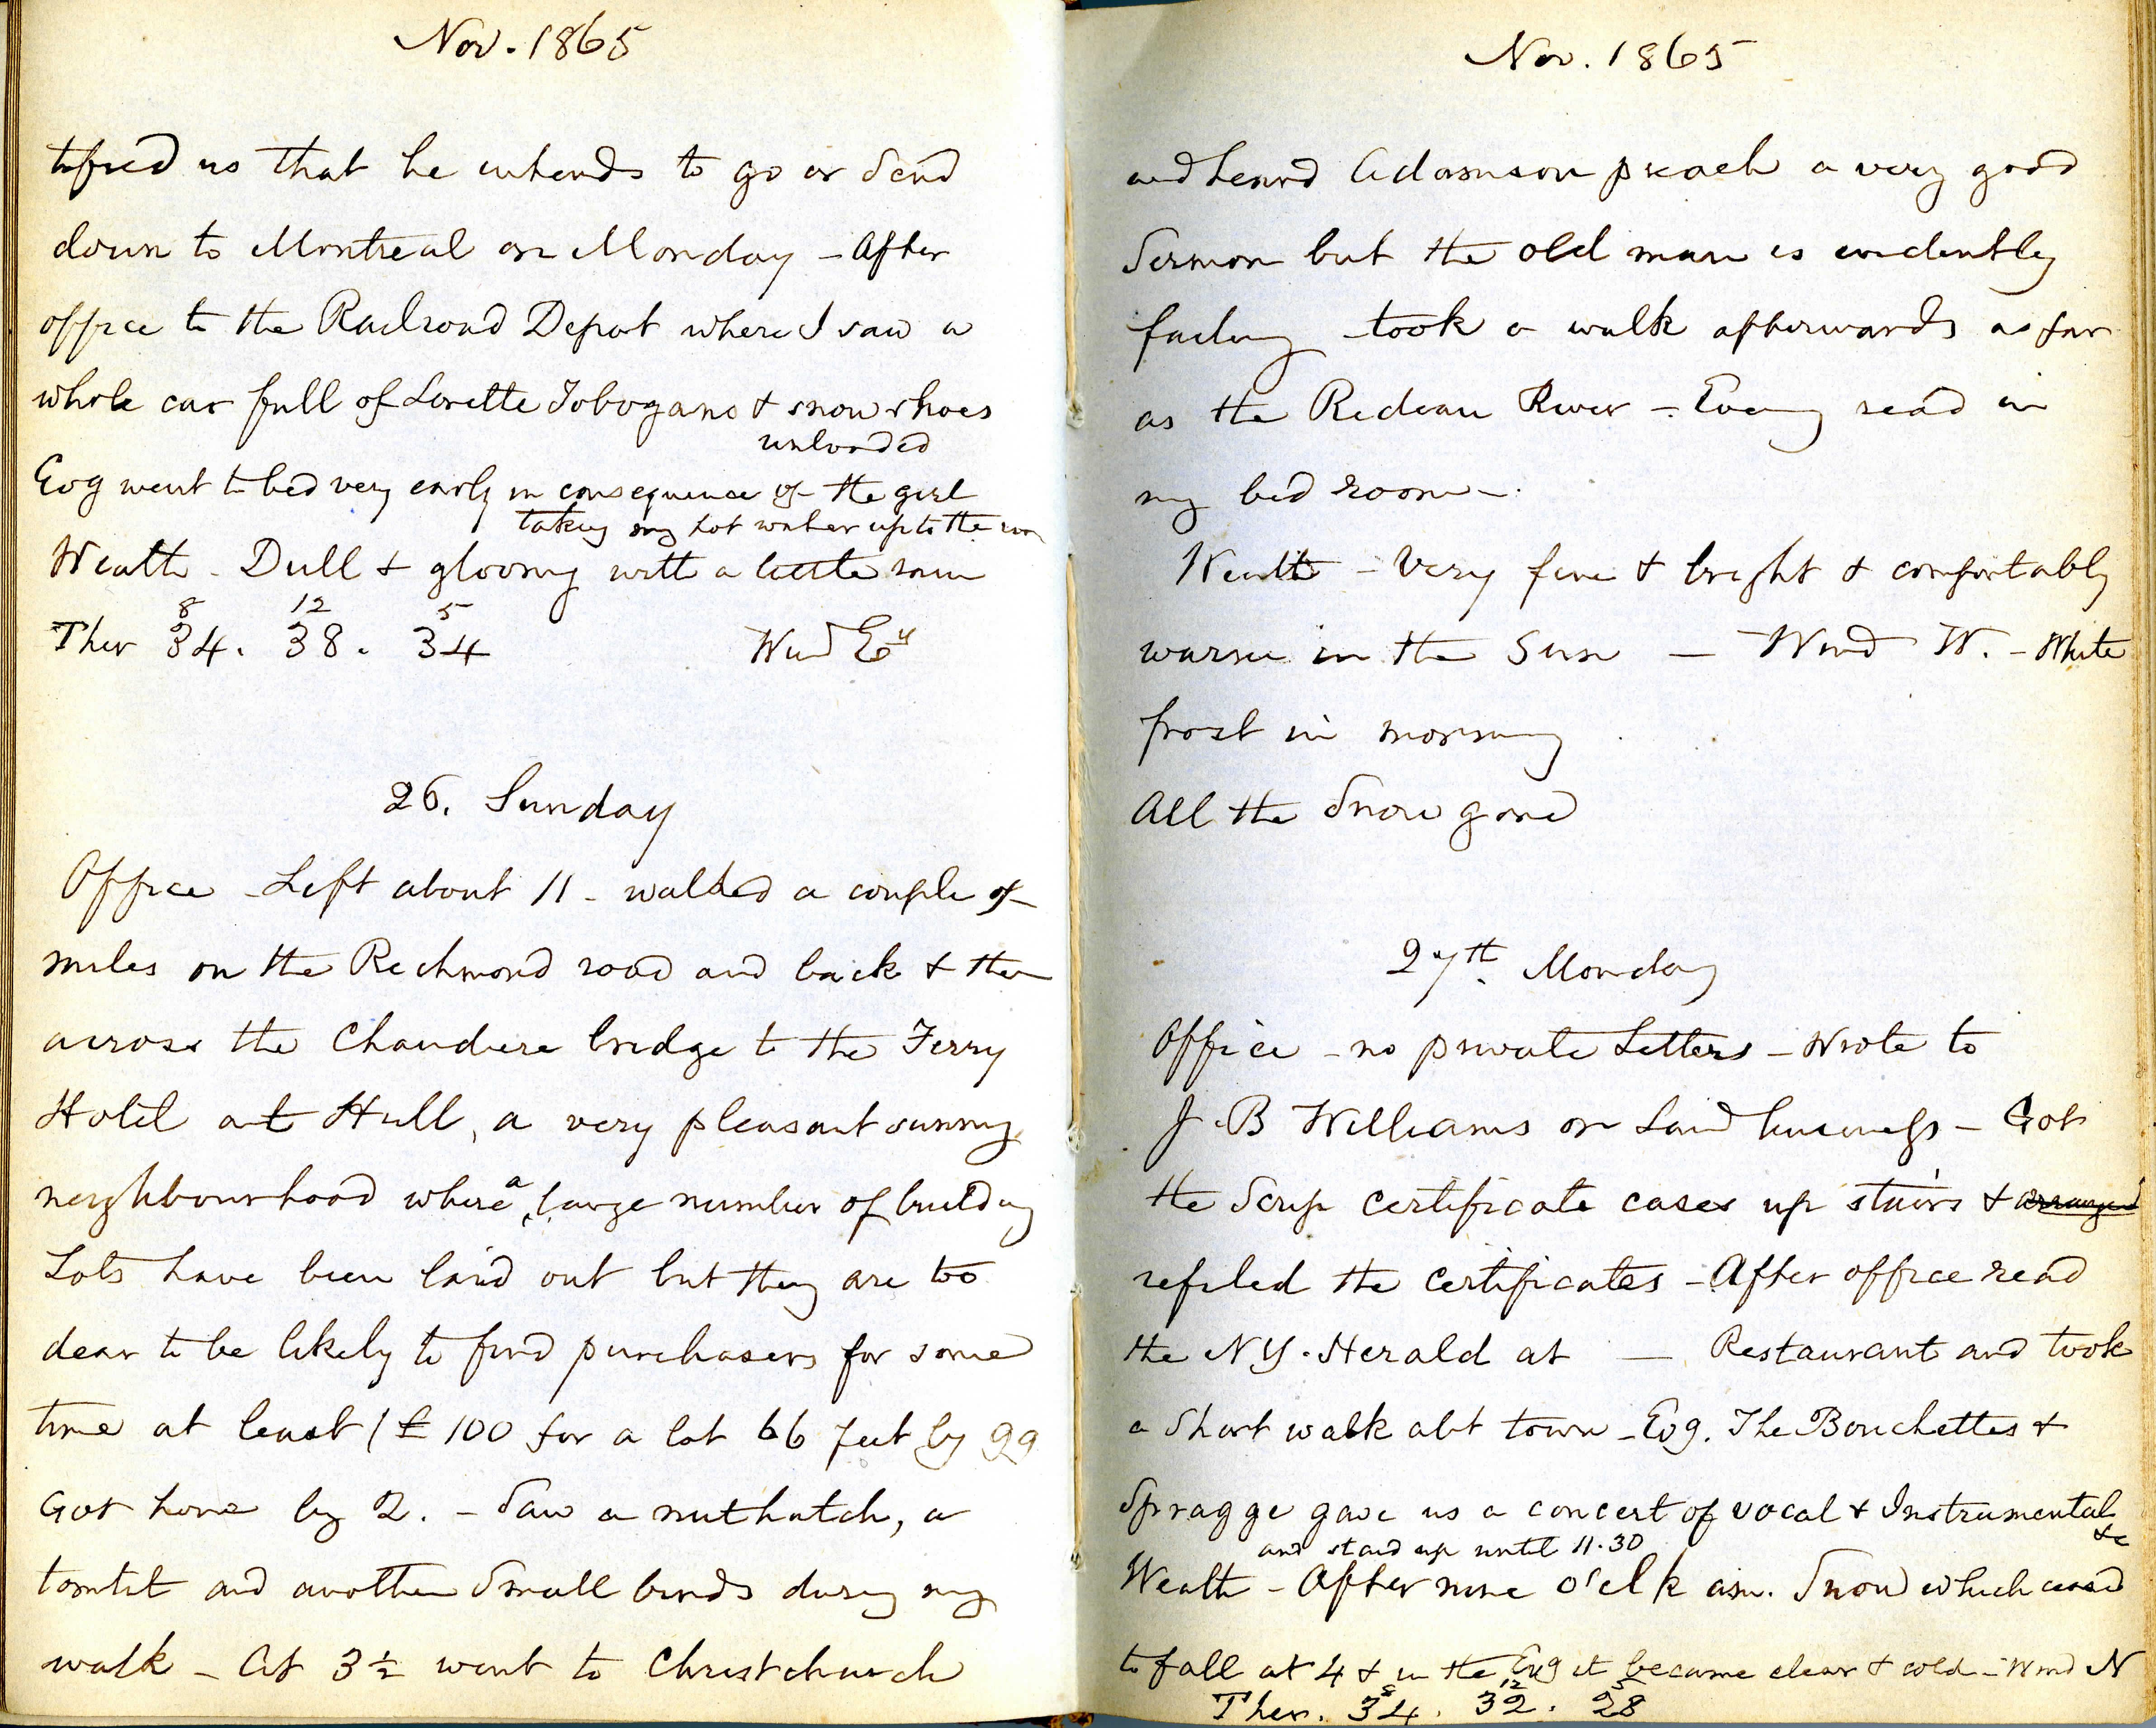 Nov. 1865
us that he intends to go or send
down to Montreal on Monday - After
office to the Railroad Depot where I saw a
whole car full of Lorette Tobogans & snow shoes
unloaded
Evg went to bed very early in consequence of the girl
taking my hot water up to the room
Weath - Dull & gloomy with a little rain
8 12 5
Ther 34. 38. 34 Wind Ey
26. Sunday
Office - Left about 11 - walked a couple of
miles on the Richmond road and back & then
across the Chaudiere bridge to the Ferry
Hotel at Hull, a very pleasant sunny
neighbourhood where a large number of building
Lots have been laid out but they are too
dear to be likely to find purchasers for some
time at least / £ 100 for a lot 66 feet by 99
Got home by 2. - Saw a nuthatch, a
tomtit and another Small birds during my
walk - At 3½ went to Christchurch
Nov. 1865
and heard Adamson preach a very good
Sermon but the old man is evidently
failing took a walk afterwards as far
as the Rideau River - Evening read in
my bed room -
Weath - Very fine & bright & comfortably
warm in the Sun - Wind W. - White
frost in morning
All the Snow gone
27th. Monday
Office - no private Letters - Wrote to
J. B Williams on Land business - Got
the Scrip certificate cases up stairs & arranged
refiled the certificates - After office read
the NY. Herald at — Restaurant and took
a Short walk abt town - Evg. The Bouchettes &
Spragge gave us a concert of vocal & Instrumental
&c
and staid up until 11.30
Weath - After nine o'clk am. Snow which ceased
to fall at 4 & in the Evg it became clear & cold - Wind N
8 12 5
Ther. 34. 32. 28